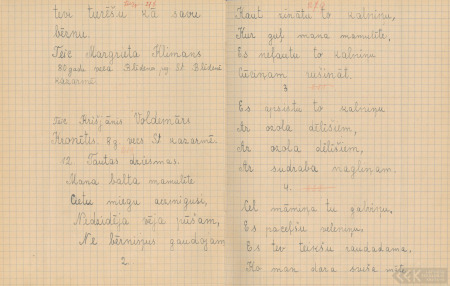 tevi turēšu kā savu
bērnu.
Teic Margrieta Klimans
80 gadu veca Blīdenē pag. St. Blīdenē
kazarmē.
Teic Kristjānis Voldemārs
Kronītis. 8 g. vecs St. kazarmē.
12. Tautas dziesmas.
Mana balta mamulīte
Cietu miegu aizmiguse,
Nedzidēja vēja pūšam,
Ne bērniņus gaudojam
2.
Kaut zinātu to kalniņu,
Kur guļ mana mamulīte,
Es neļautu to kalniņu
Lūsņam
3
Es apsistu to kalniņu
Ar ozola dēlīšiem,
Ar ozola dēlīšiem,
Ar sudraba nagliņām.
4.
Cel māmiņa tu galviņu,
Es pacelšu velēniņu
Es tev teikšu raudādama,
Ko man dara sveša māte.